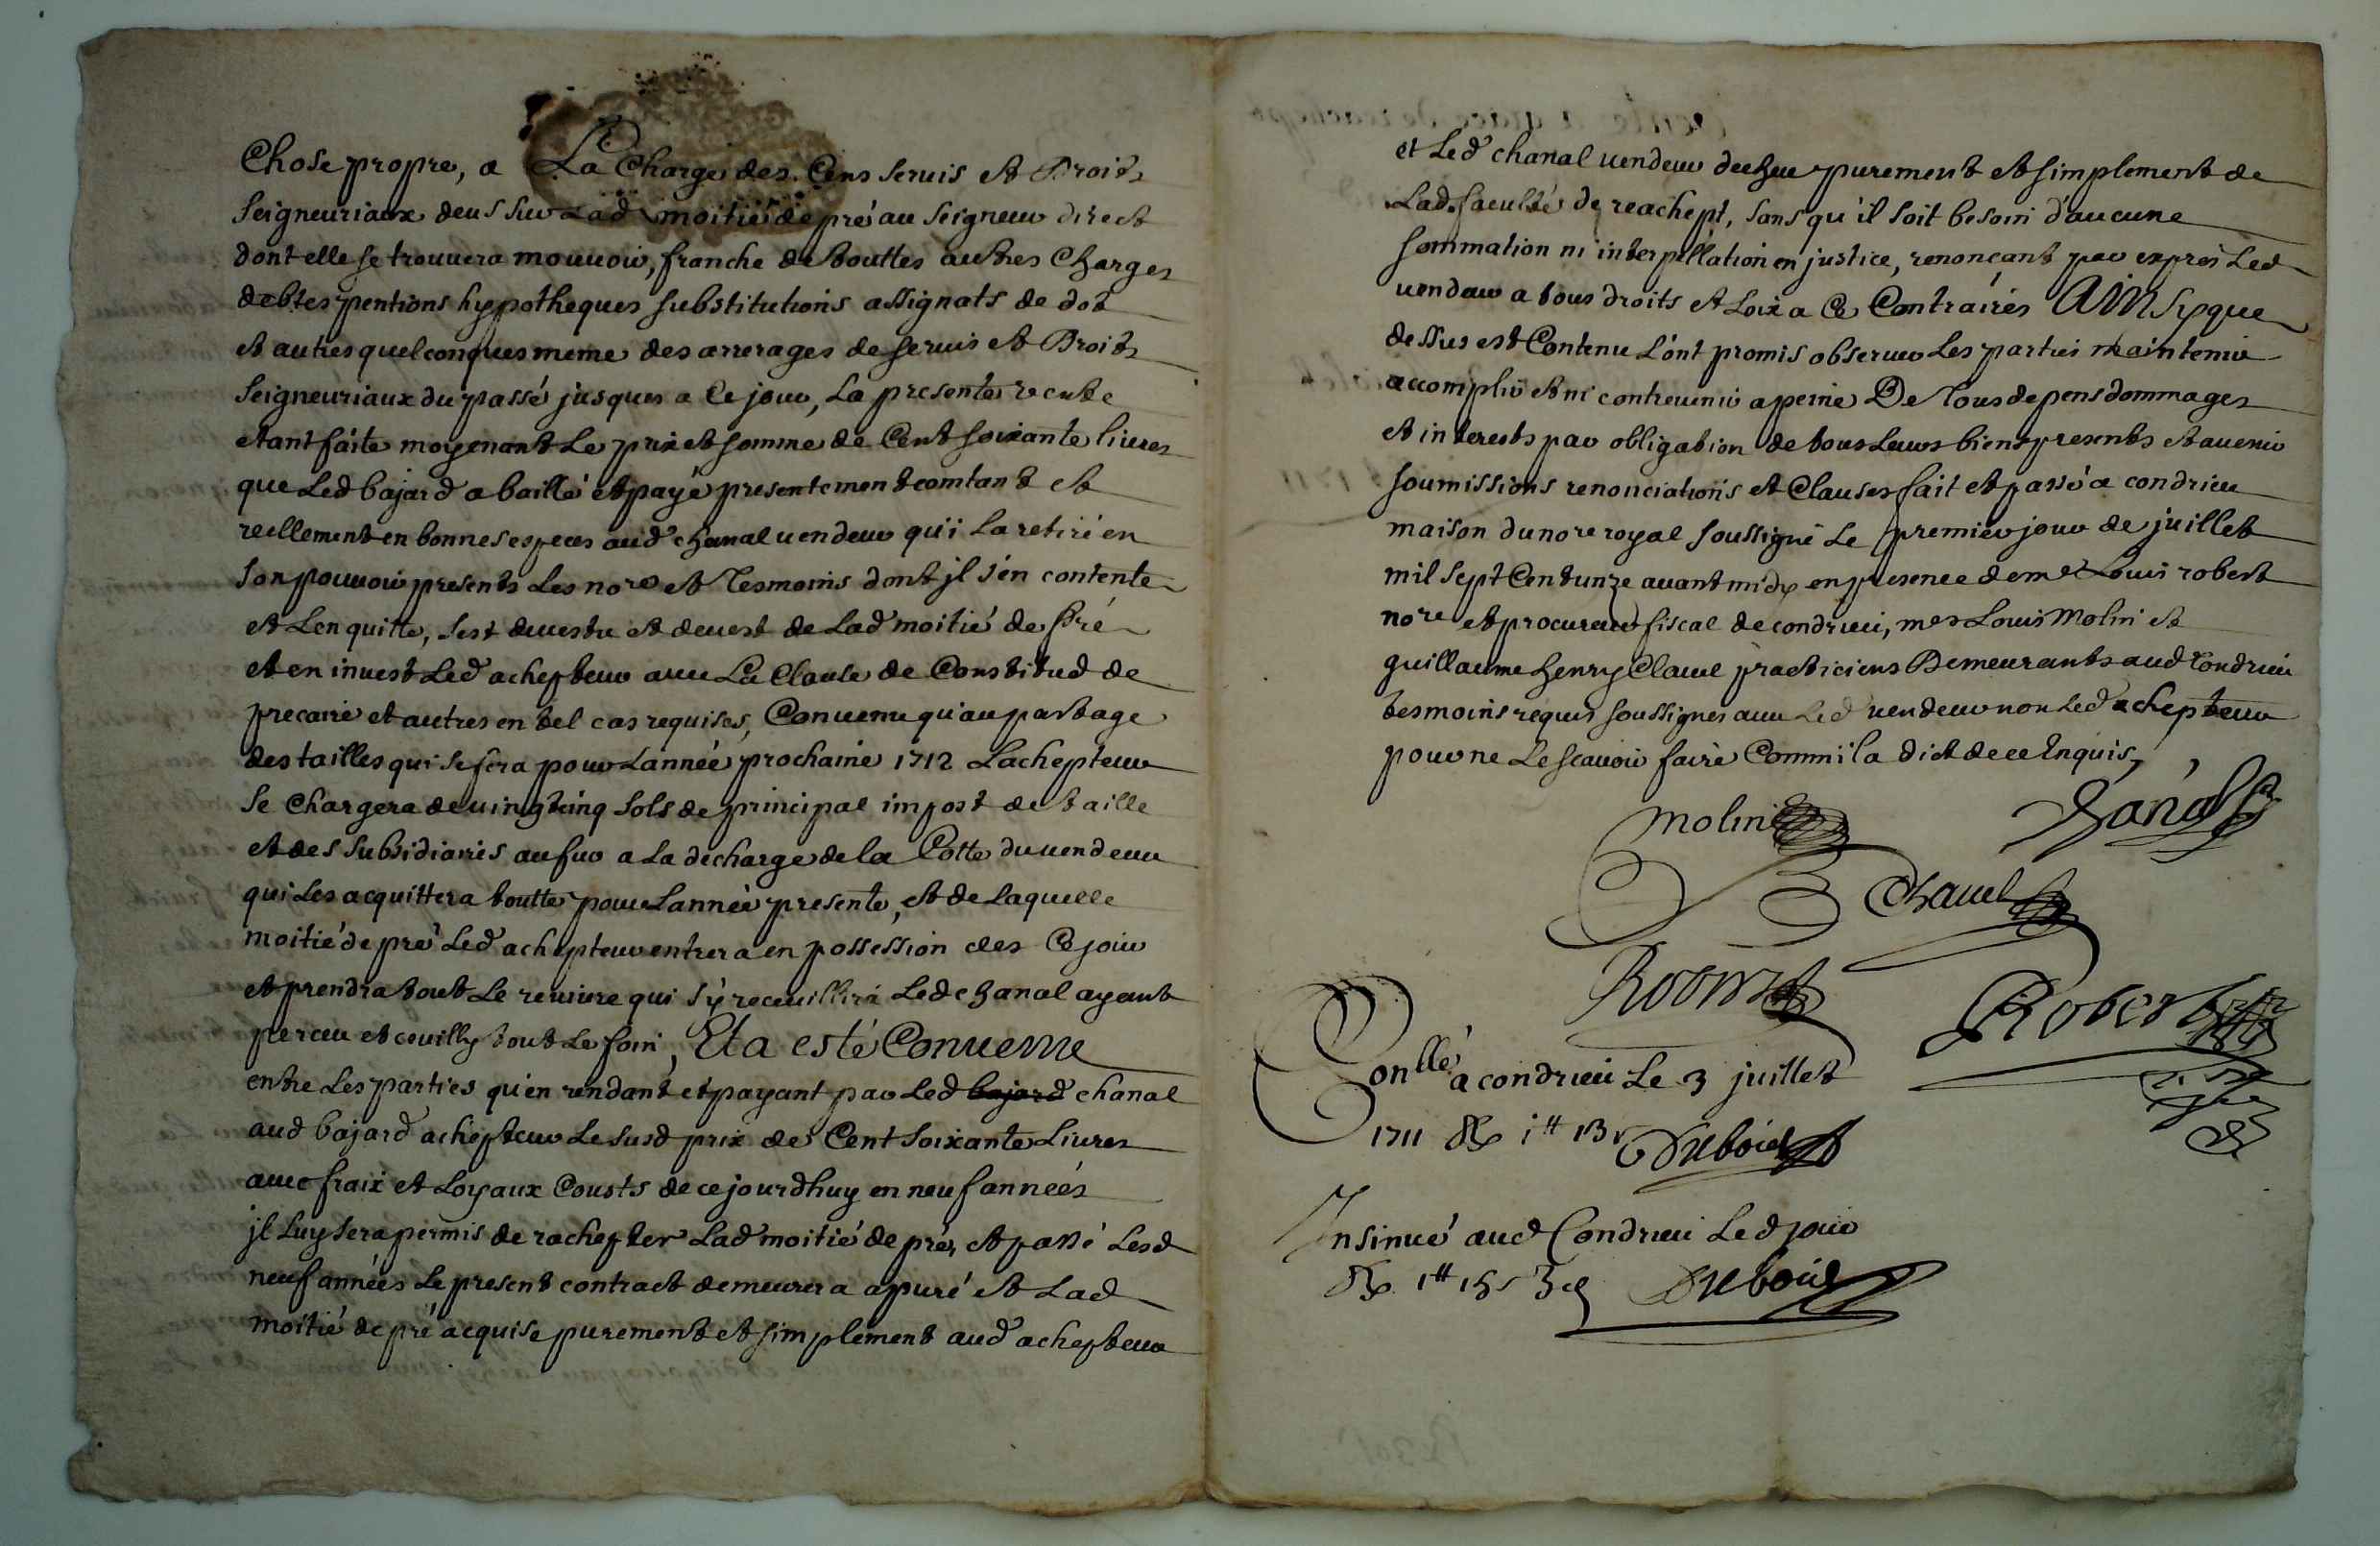 Chose propre, a La Charge des Cens servis et Droits
seigneuriaux deus sur Lad moitié de pré au seigneur direct
dont elle se trouvera mouvoir, franche de touttes autres Charges
debtes pentions hypotheques substitutions assignats de dot
et autres quelconques meme des arrerages de servis et Droits
seigneuriaux du passé jusques a Ce jour, La presente vente
etant faite moyenant Le prix et somme de Cent soixante livres
que Led bajard a baillé et payé presentement comtant et
reellement en bonnes especes aud chanal vendeur qui La retiré en
son pouvoir presents Les nore et Tesmoins dont jl s'en contente
et L'en quitte, s'est devestu et devest de Lad moitié de Pré
et en invest Led achepteur avec La Clause de Constitud de
precaire et autres en tel cas requises, Convenu qu'au partage
des tailles qui se fera pour Lannée prochaine 1712 Lachepteur
se Chargera de vingtcinq sols de principal impost de taille
et des subsidiaires au fur a La decharge de la Cotte du vendeur
qui Les acquittera toutte pour Lannée presente, et de Laquelle
moitié de pré Led achepteur entrera en possession des Ce jour
et prendra tout Le revivre qui s'y receuillira Led chanal ayant
perceu et ceuilly tout Le foin, Et a esté Convenu
entre Les parties qu'en rendant et payant par Led bajard chanal
aud bajard achepteur Le susd prix de Cent soixante Livres
avec fraix et Loyaux Cousts de ce jourdhuy en neuf années
jl Luy sera permis de rachepter Lad moitié de pré, et passé Lesd
neuf années Le present contract demeurera apuré et Lad
moitié de pré acquise purement et simplement aud achepteur
et Led chanal vendeur decheu purement et simplement de
Lad faculté de reachept, sans qu'il soit besoin d'aucune
sommation ni interpellation en justice, renonçant par exprès Led
vendeur a tous droits et Loix a Ce Contraires AINSy que
dessus est Contenu L'ont promis observer Les parties maintenir
accomplir et ni contrevenir a peine De Tous depens dommages
et interests par obligation de tous Leurs biens presents et avenir
soumissions renonciations et Clauses fait et passé a condrieu
maison du nore royal soussigné Le premier jour de juillet
mil sept Cent unze avant midy en presence de me Louis robert
nore et procureur fiscal de condrieu, mes Louis Molin et
guillaume henry Clavel practiciens Demeurants aud Condrieu
tesmoins requis soussignes avec Led vendeur non Led achepteur
pour ne Le scavoir faire Comm'il a dict de ce Enquis,
molin
Chanal
Clavel
Robert
Conllé a condrieu Le 3 juillet
1711 Rx 1tt 13s Duboies
Insinué aud Condrieu Led jour
Rx 1tt Duboies